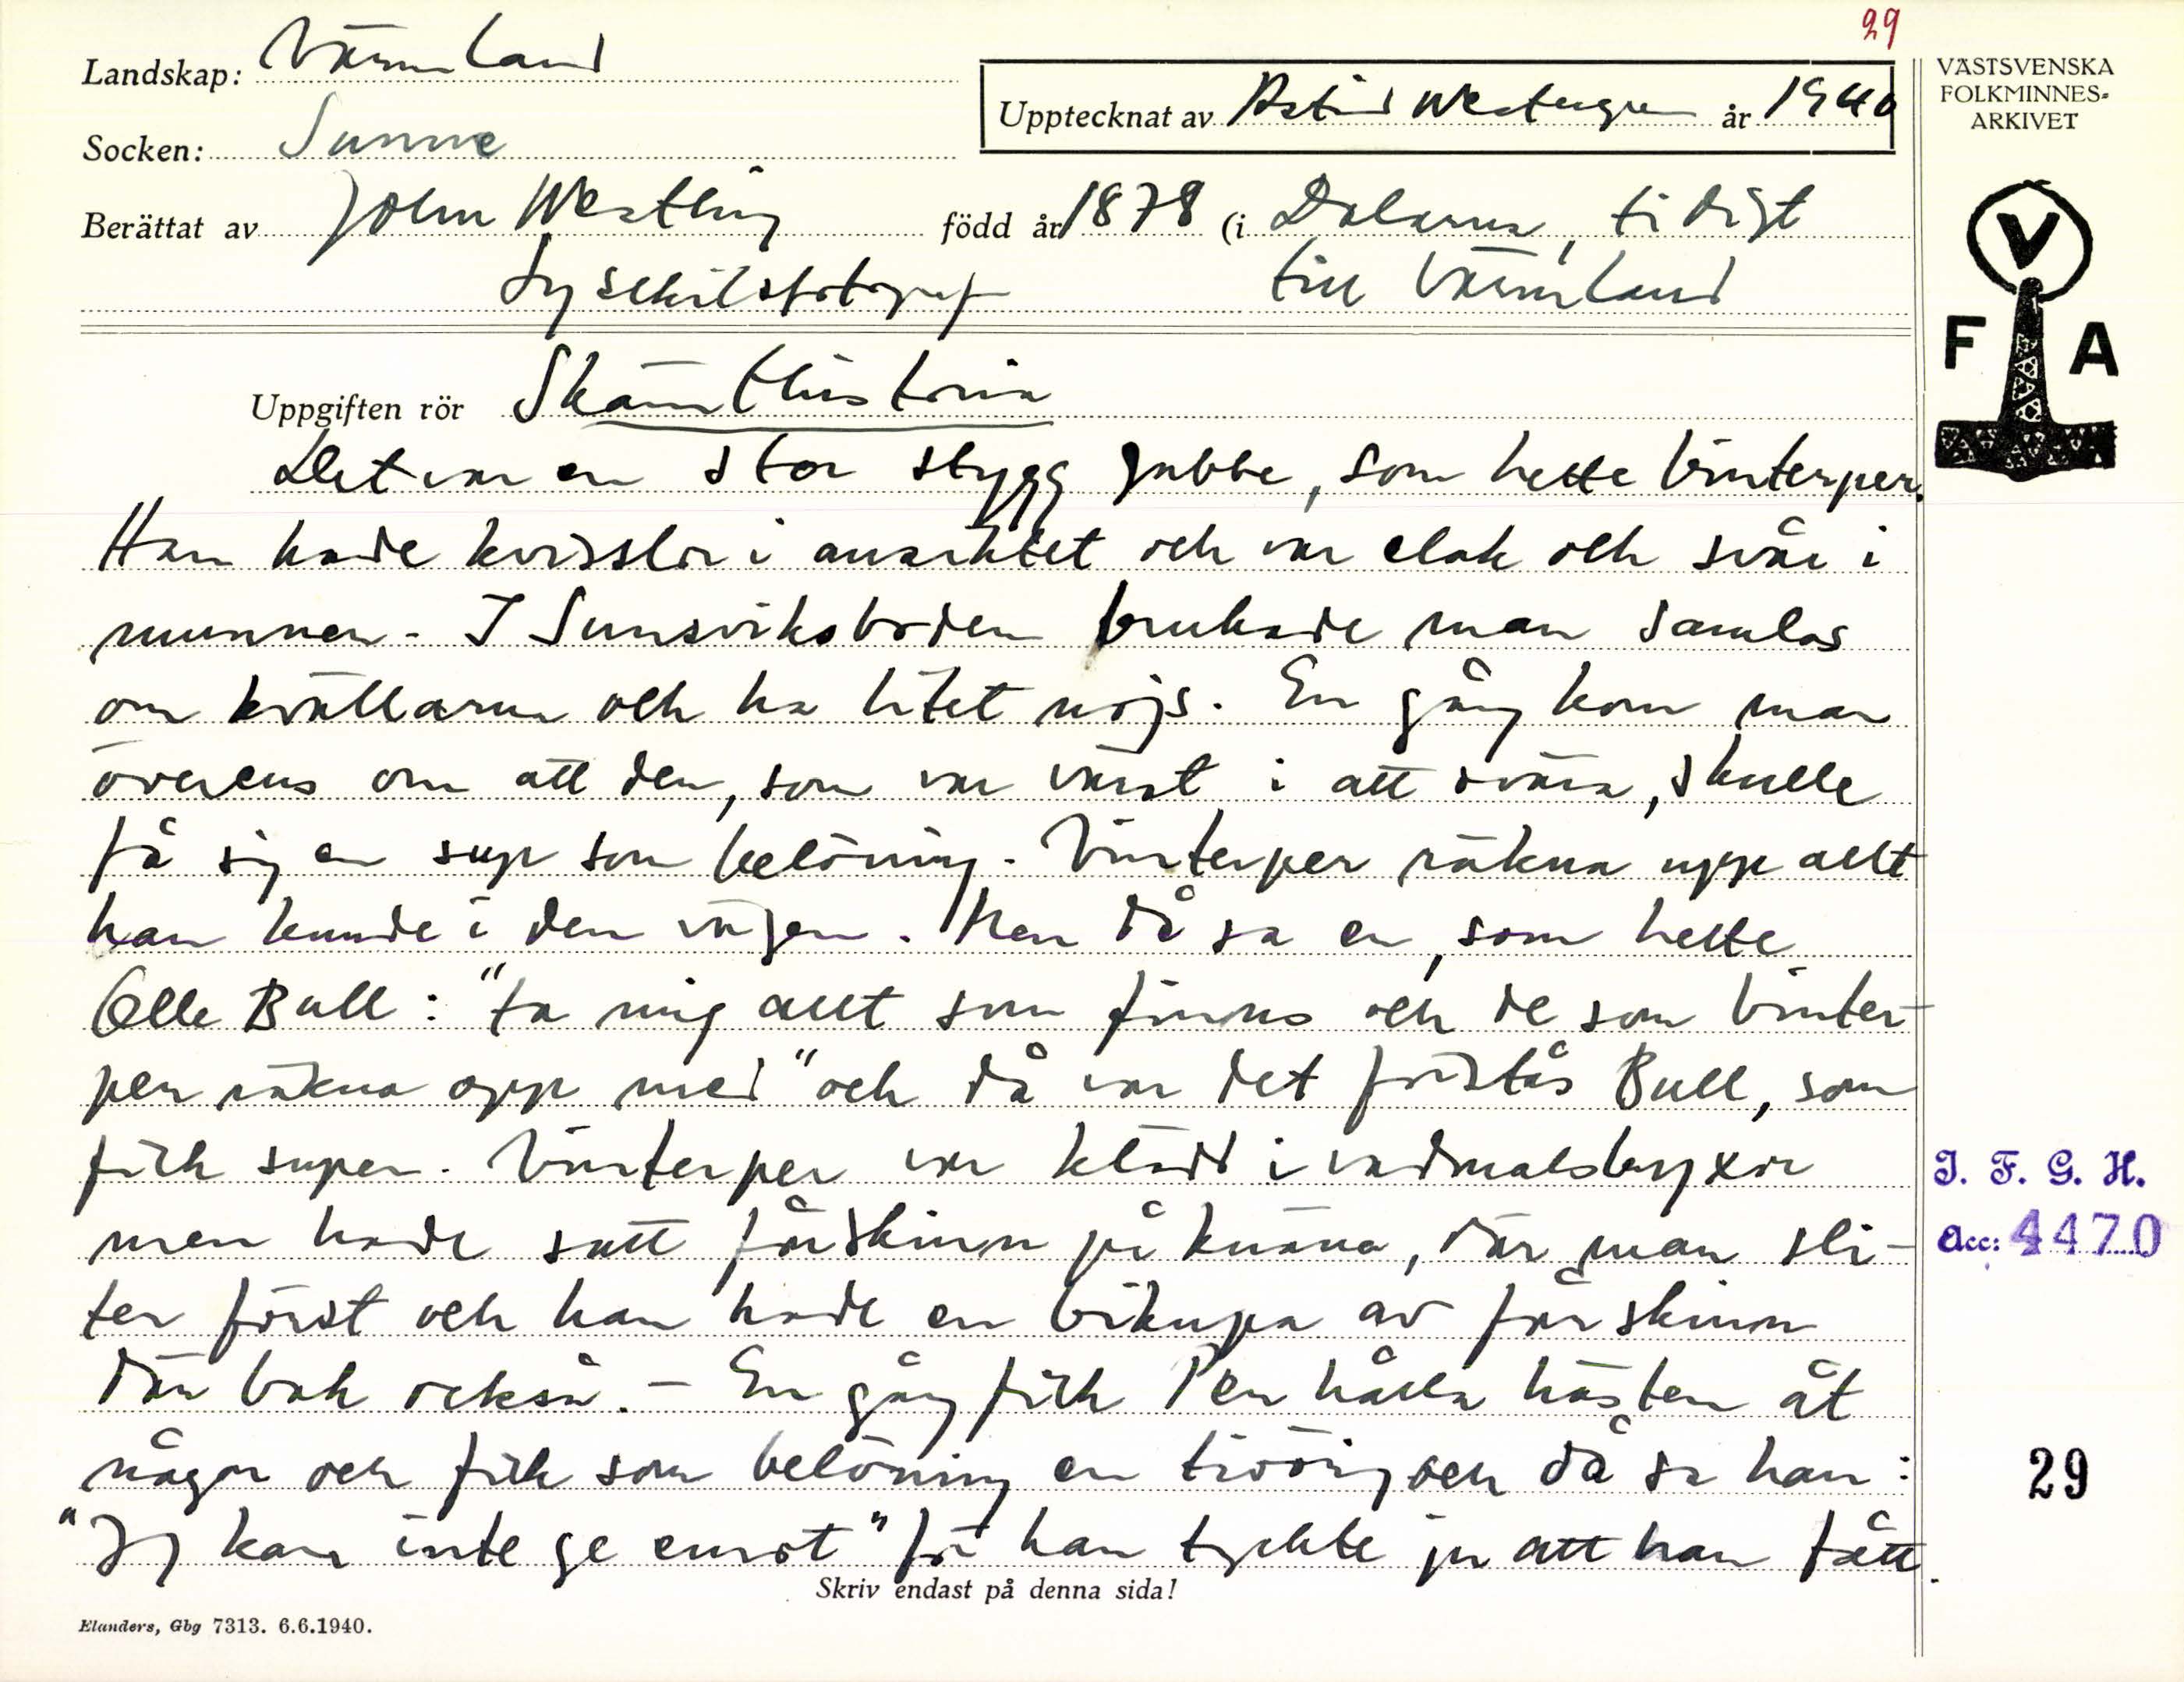 29
Landskap: Värmland
Upptecknat av Astrid Westergren år 1940
VÄSTSVENSKA
FOLKMINNES-
ARKIVET
Socken: Sunne
Berättat av John Westling född år 1878 (i Dalarna, tidigt
Lysekilsfotograf till Värmland
V
F A
Uppgiften rör Skämthistoria
Det var en stor stygg gubbe, som hette Vinterper.
Han hade kvisslor i ansiktet och var elak och svår i
munnen. I Sunsviksboden brukade man samlas
om kvällarna och ha litet nöjs. En gång kom man
överens om att den, som var värst i att svära, skulle
få sig en sup som belöning. Vinterper räkna upp allt
han kunde i den vägen. Men då sa en, som hette
Olle Bull: "ta mig allt som finns och de som Vinter-
per räkna opp med" och då var det förstås Bull, som
fick supen. Vinterper var klädd i vadmalsbyxor
men hade satt fårskinn på knäna, där man sli-
ter först och han hade en bikupa av fårskinn
där bak också. - En gång fick Per hålla hästen åt
någon och fick som belöning en tioöring och då sa han:
"Jag kan inte ge emot" för han tyckte ju att han fått.
J. F. G. H.
Acc: 4470
29
Skriv endast på denna sida!
Elanders, Gbg 7313. 6.6.1940.